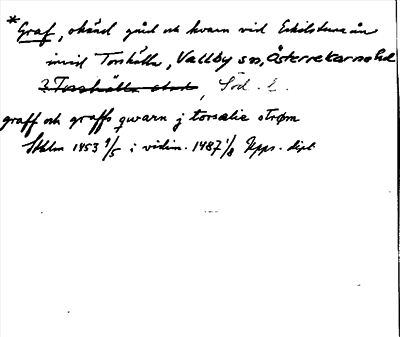 * Graf, okänd gård och kvarn vid Eskilstunaån
invid Torshälla, Vallby sn, Österrekarne hd
? Torshälla stad, Söd. l.
graff och graffs qwarn j torsælie strøm
Sthlm 1453 9/5 i vidim. 1487 1/8 Upps. dipl.